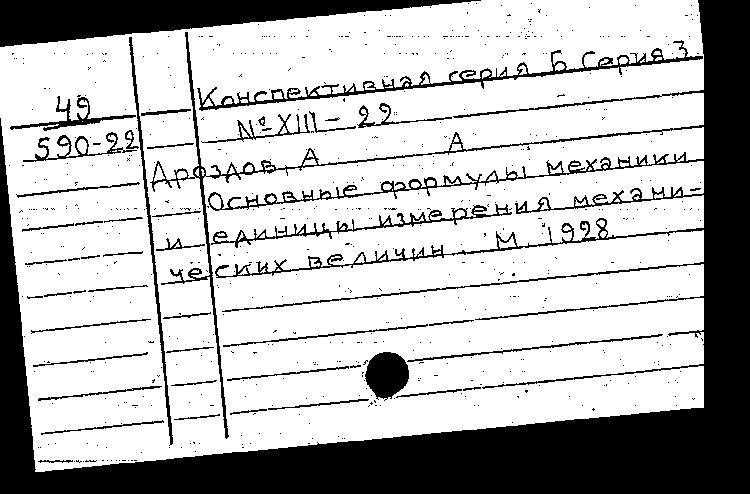 49
590-22
Конспективная серия Б Серия 3
№ XIII - 22
Дроздов, А А
Основные формулы механики
и единицы измерения механи-
ческих величин. М. 1928